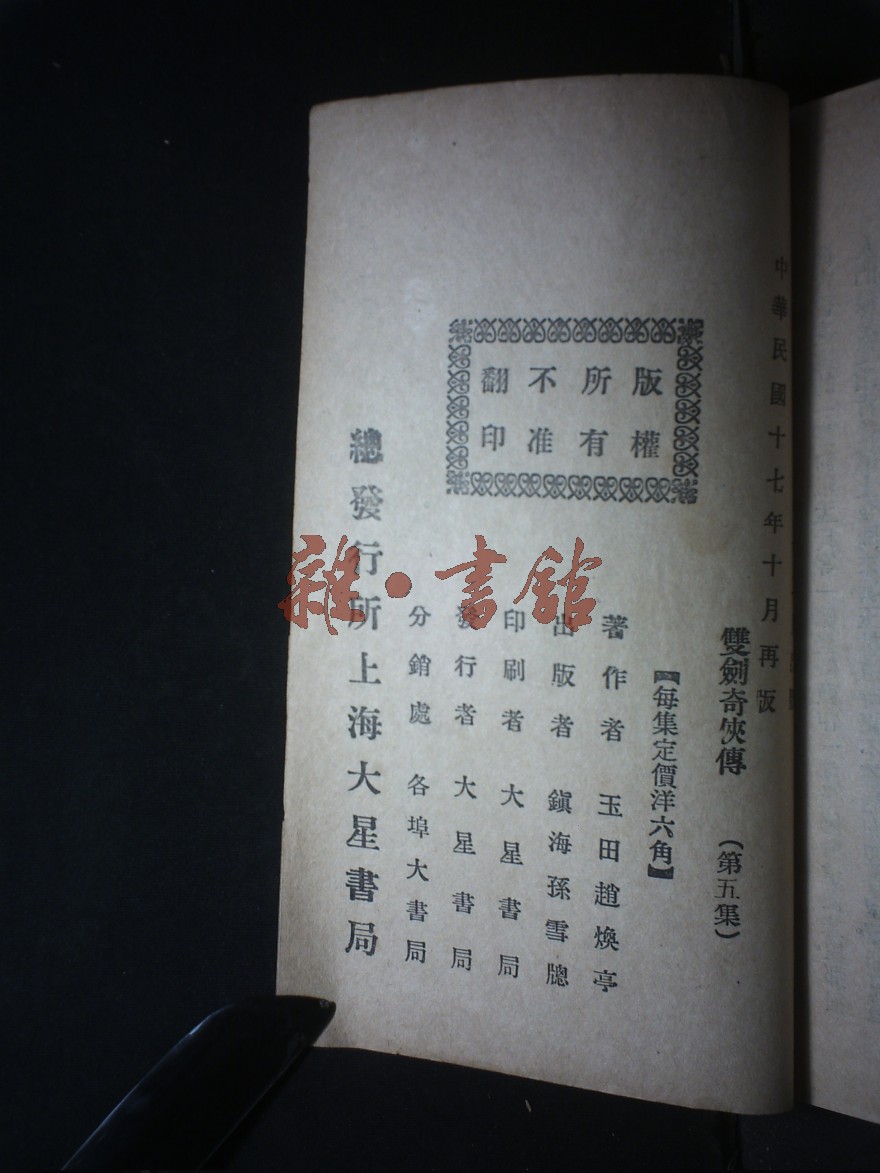 中華民國十七年十月再版
雙劍奇俠傳 (第五集)
【每集定價洋六角】
版權
所有
不准
翻印
著作者 玉田趙煥亭
出版者 鎮海孫雪牕
印刷者 大星書局
發行者 大星書局
分銷處 各埠大書局
總發行所上海大星書局
雜·書館